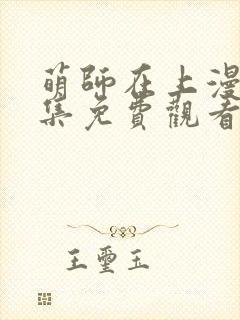 萌師在上漫
集免費觀看
王璽玉